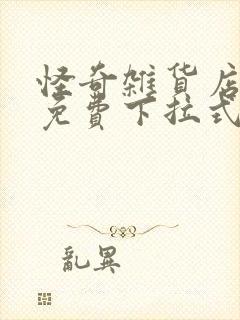 怪奇雜貨店
免費下拉式
亂異